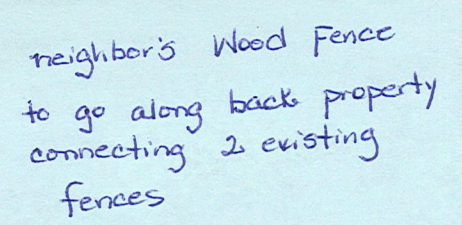 neighbor's Wood Fence
to go along back property
connecting 2 existing
fences